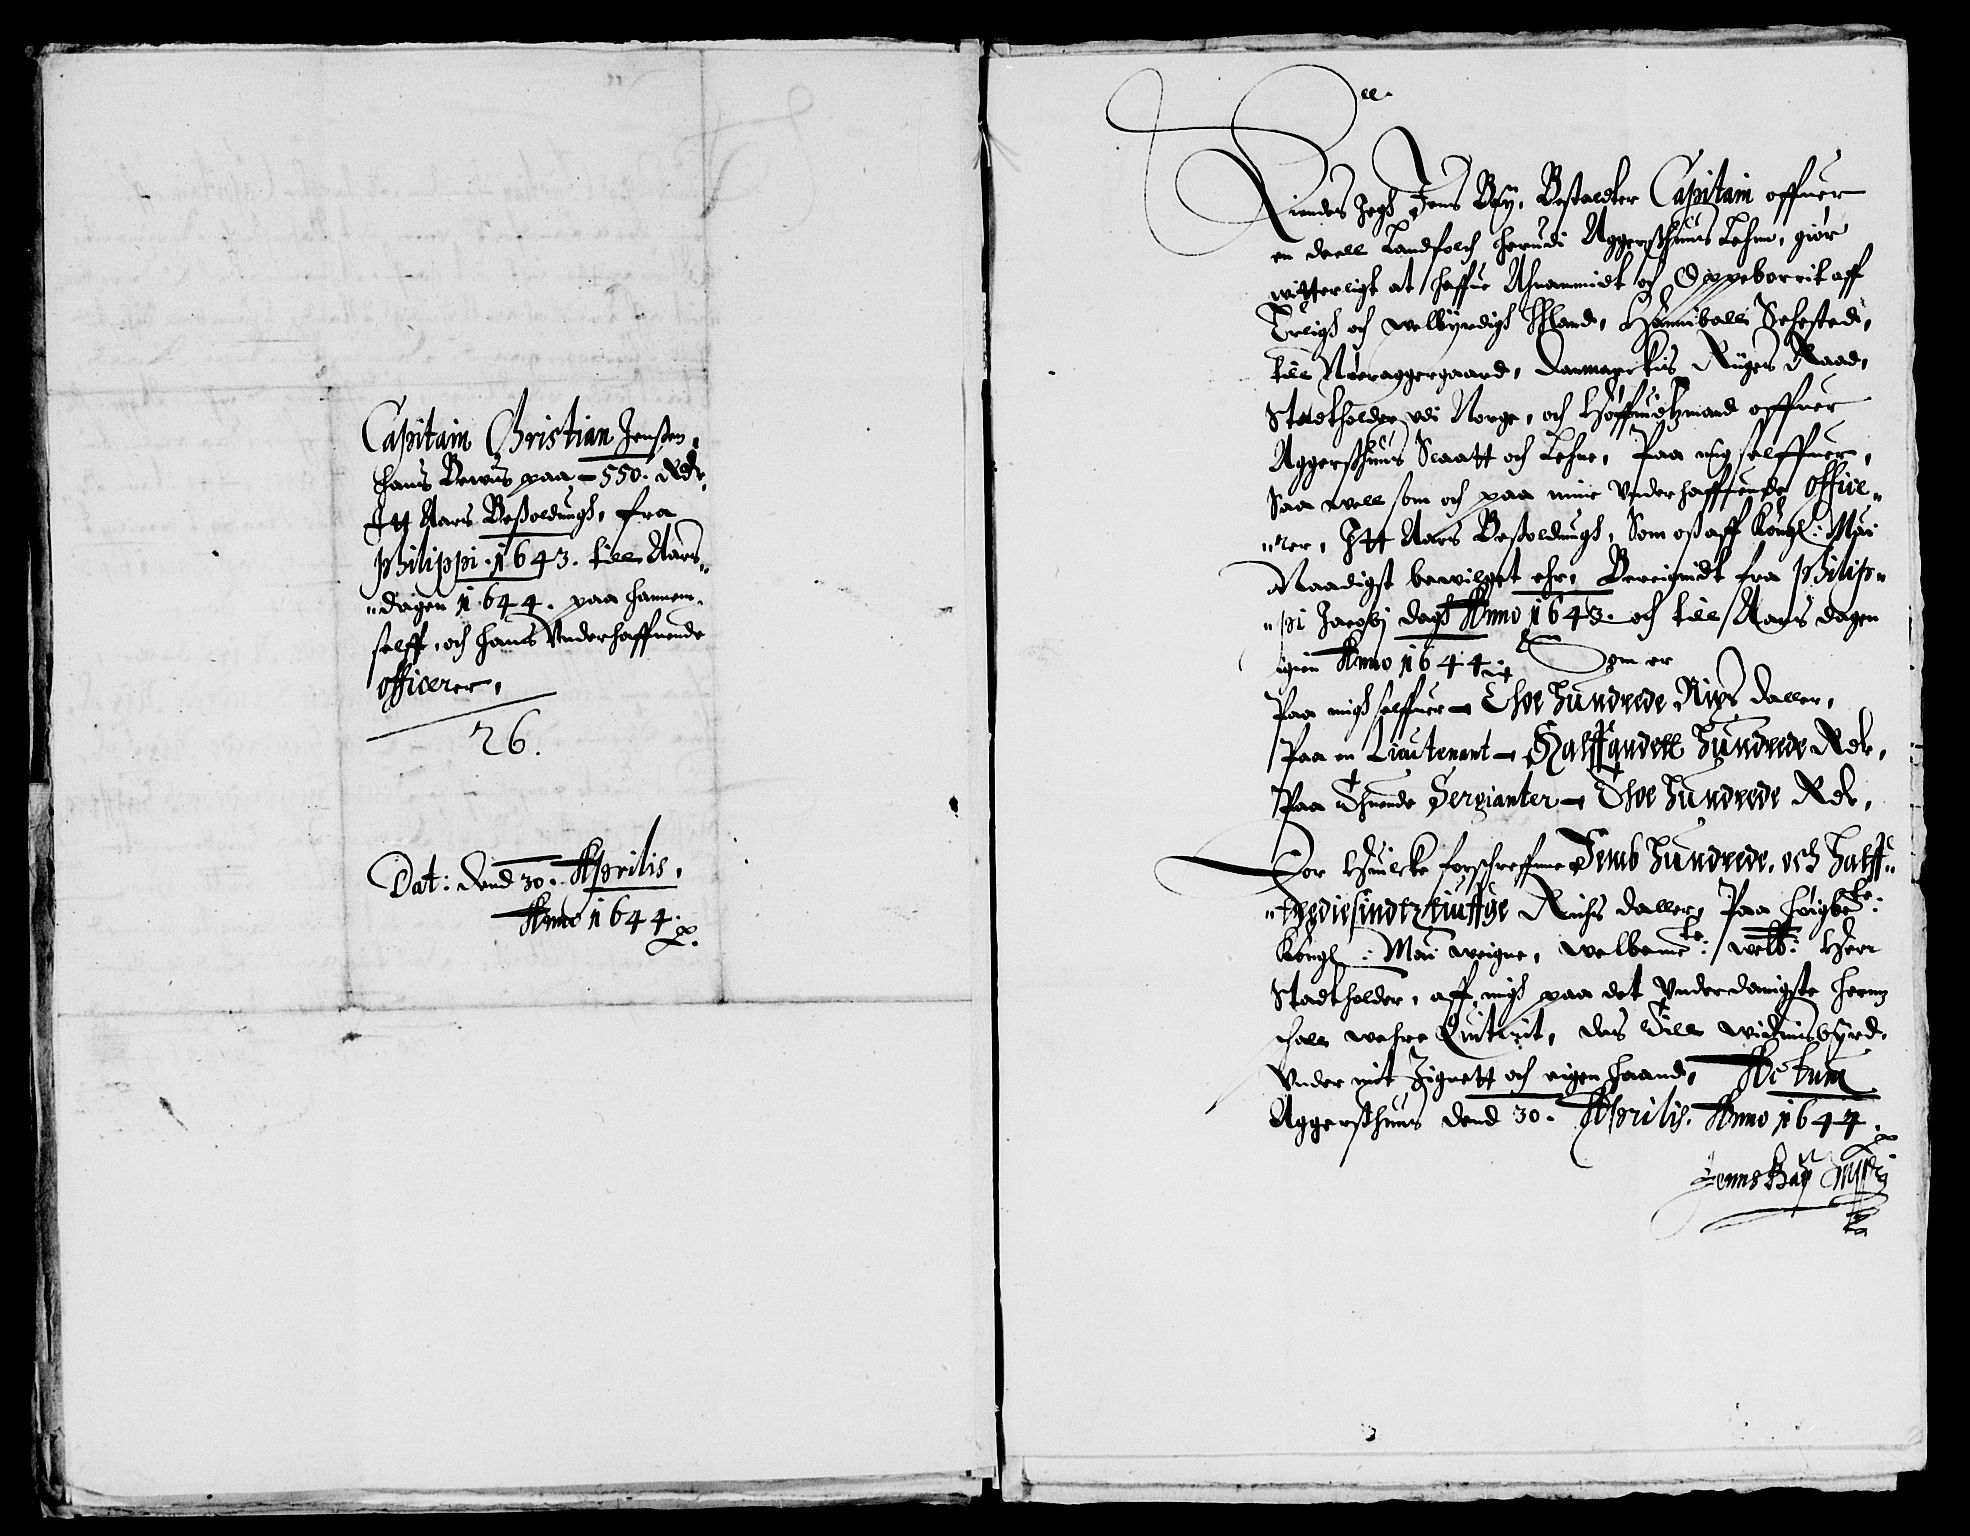 Capitain Christian Jenßen,
hans Bewis paa - 550. Rdr.
Itt Aars Besoldung, fra
Philippi. 1643. till Aars„
„dagen 1644. paa hannem
selff, och hans Underhaffuende
Officerer,
26.
Dat: Dend 30. Aprilis.
Anno 1644.
Kiendes Jegh Jens Bay, Bestaldter Capitain offuer
en deell Landfolch herudi Aggerßhuus Lehn, giør
witterligt at haffue Anammidt och Oppeborrit aff
Erligh och welbyrdigh Mand, Hanniball Sehested,
till Nøraggergaard, Danmarckis Rigers Raad,
Stadtholder udi Norge, och Høffuidtzmand offuer
Aggerßhuus Slaatt och Lehne, Paa mig selffuer,
Saa well som och paa mine Underhaffuende Office„
„rer, Itt Aars Besoldungh, Som oß aff Kongl: May
Naadigst bewilget ehr, Bereignidt fra Philip„
„pi Jacobj dagh Anno 1643. och till Aars dagen
igien Anno 1644. Som er
Paa migh selffuer - Thoe Hundrede Rixs daller,
Paa en Lieutenant - Halffandett Hundrede Rdr.
Paa Thuende Sergianter - Thoe Hundrede Rdr.
For Huilcke forschreffne Femb Hundrede och Halff„
„thrediesindtztiuffge Richs daller, Paa Høigbte:
Kongl: May weigne, welbemte: welb: Herr
Stadtholder, aff migh paa det Underdanigste herme
schall wehre Quiterit, Des till widnisbyrd.
Under mit Zignett och eigen haand, Actum
Aggerßhuus Dend 30. Aprilis. Anno 1644.
Jenns Bay Mppria